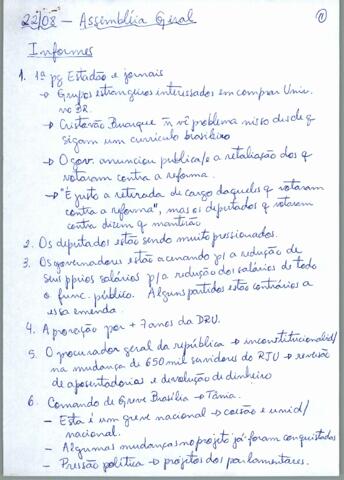 22/08 – Assembléia Geral
1
Informes
1. 1ª pg Estadão e jornais
→ Grupos estrangeiros interessados em comprar Univ.
no BR.
→ Cristovão Buarque ñ vê problema nisso desde q
sigam um currículo brasileiro
→ O gov. anunciou publica/e a retaliação dos q
votaram contra a reforma.
→ "É justo a retirada de cargo daqueles q votaram
contra a reforma", mas os deputados q votaram
contra dizem q mantirão
2. Os deputados estão sendo muito pressionados.
3. Os governadores estão acenando p/ a redução de
seus ppios salários p/ a redução dos salários de todo
o func. público. Alguns partidos estão contrários a
essa emenda.
4. Aprovação por + 7 anos da DRU.
5. O procurador geral da república → inconstitucionalid/
na mudança de 650 mil servidores do RJU → revisão
de aposentadorias e devolução de dinheiro
6. Comando de Greve Brasília → Tânia.
– Esta é um greve nacional → coesão e unid/
nacional.
– Algumas mudanças no projeto já foram conquistadas
– Pressão política → projetos dos parlamentares.